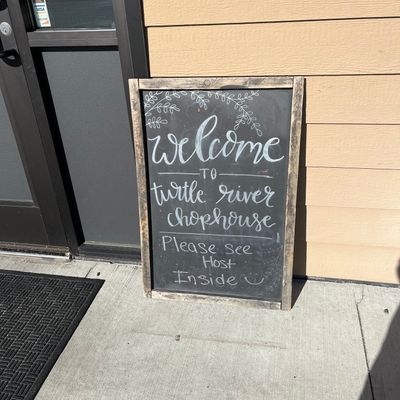 welcome
TO
turtle river
chophouse
Please see
Host
Inside